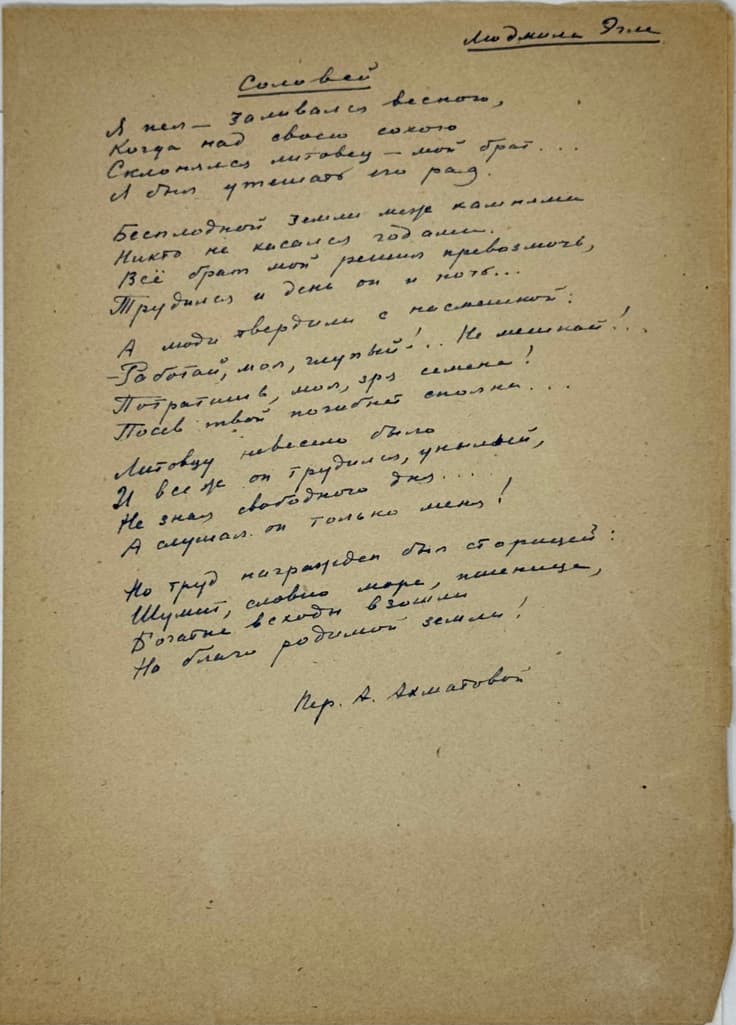 Людмила Эгле
Соловей
Я пел — заливался весною,
Когда над своею сохою
Склонялся литовец — мой брат...
Я был утешать его рад.
Бесплодной земли меж камнями
Никто не касался годами.
Всё брат мой решил превозмочь,
Трудился и день он и ночь...
А люди твердили с насмешкой:
— Работай, мол, глупый!.. Не мешкай!..
Потратишь, мол, зря семена!
Посев твой погибнет сполна...
Литовцу невесело было
И все ж он трудился, унылый,
Не зная свободного дня...
А слушал он только меня!
Но труд награжден был сторицей:
Шумит, словно море, пшеница,
Богатые всходы взошли
На благо родимой земли!
Пер. А. Ахматовой